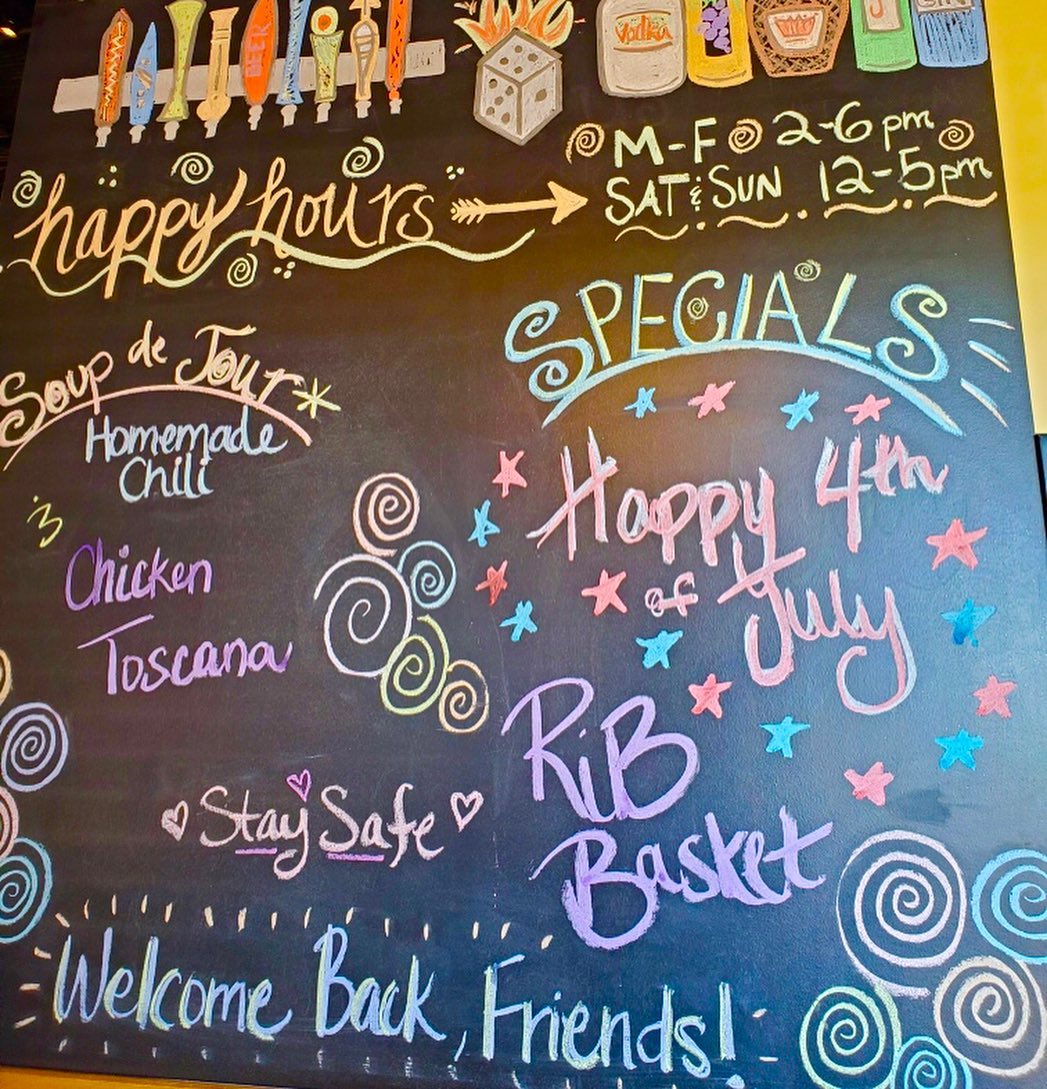 BEER
Vodka
GIN
happy hours
M-F 2-6pm
SAT & SUN 12-5pm
SPECIALS
Soup de Jour
Homemade
Chili
Chicken
Toscana
Happy 4th
of July
RiB
Basket
Stay Safe
Welcome Back, Friends!